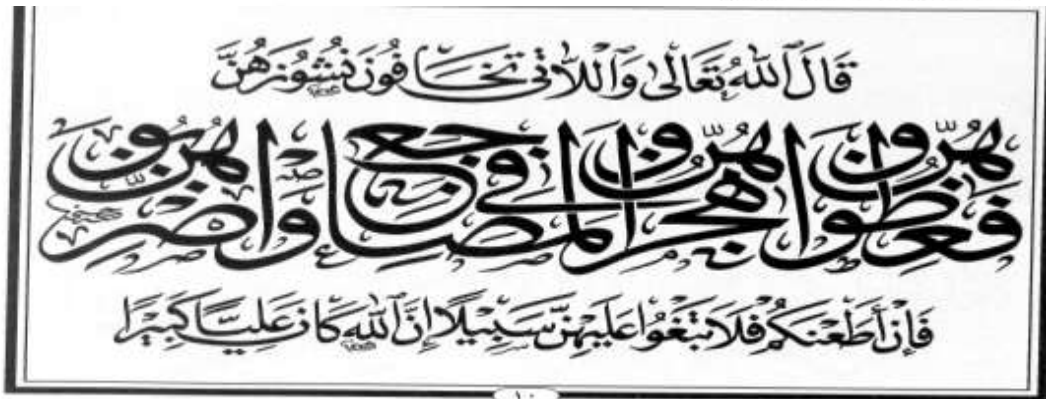 قَالَ ٱللهُ تَعَالَىٰ وَٱللَّاتِى تَخَافُونَ نُشُوزَهُنَّ
فَعِظُوهُنَّ وَاهْجُرُوهُنَّ فِى الْمَضَاجِعِ وَاضْرِبُوهُنَّ
فَإِنْ أَطَعْنَكُمْ فَلَا تَبْغُوا عَلَيْهِنَّ سَبِيلًا إِنَّ ٱللهَ كَانَ عَلِيًّا كَبِيرًا
١٠